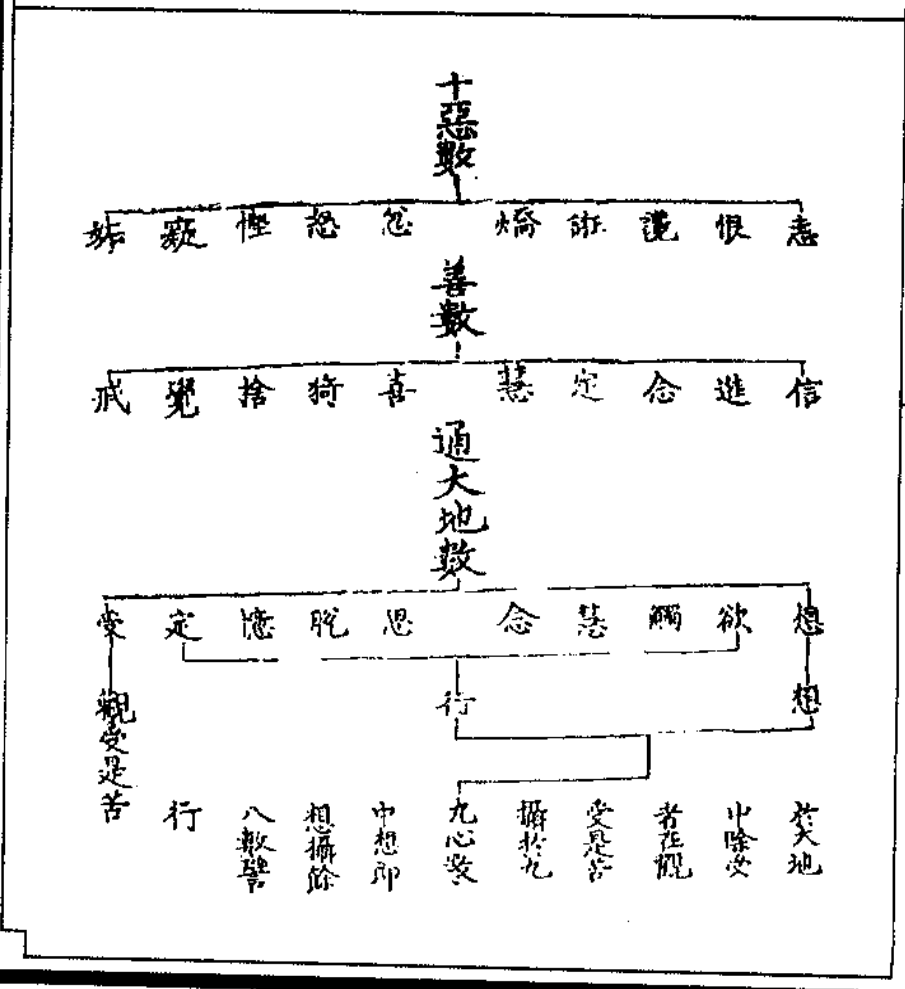 十惡數
恚 恨 誑 憍 忿 怒 慳 妬
善數
信 進 念 定 慧 喜 猗 捨 覺 戒
通大地數
想 欲 觸 慧 念 思 脫 憶 定 受
想
行
觀受是苦
於大地
中除受
者在觀
受是苦
攝於九
九心數
中想即
想攝餘
八數譬
行